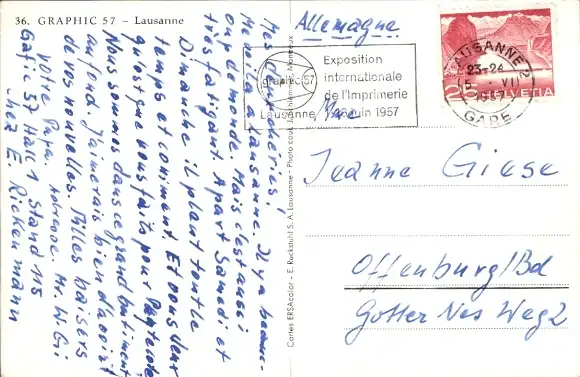 36. GRAPHIC 57 – Lausanne
Mes 2 cheries!
Me voilà à Lausanne. Il y a beau-
coup de monde. Mais c'est aussi
très fatigant. Apart Samedi et
Dimanche il pleut tout le
temps et comment. Et vous deux
qu'est que vous faits pour Pentecote
Nous sommes dans ce grand batiment
au fond. J'aimerais bien d'avoir
de vos nouvelles. Milles baisers
votre Papa. Adresse. Mr. W. Gi
Gafic 57 Hall 1 Stand 115
chez E. Rickenmann
Cartes ERSAcolor - E. Ruckstuhl S. A. Lausanne - Photo coul.
Allemagne
graphic 57
Exposition
internationale
de l'Imprimerie
Lausanne 1-16 juin 1957
LAUSANNE 2
23-24
VII
1957
GARE
HELVETIA
Mme
Jeanne Giese
Offenburg/Bd
Gotter Nes Weg 2